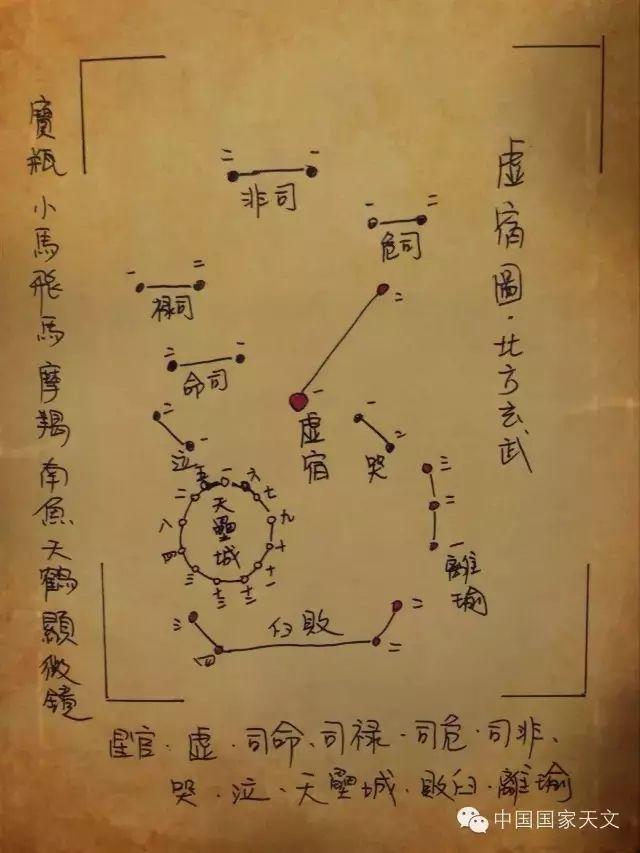 虚宿圖·北方玄武
寶瓶 小馬飛馬 摩羯 南魚天鶴顯微鏡
二 一
非司
一 二
危司
一 二
禄司
二 一
命司
二
一
虚宿
二
一
泣
一
二
哭
五 一 六
二 七
八 九
四 十
三 十一
十三 十二
天壘城
三
二
一
離瑜
三
四
二
一
臼敗
星官·虚·司命、司禄·司危·司非、
哭·泣·天壘城·敗臼·離瑜
中国国家天文